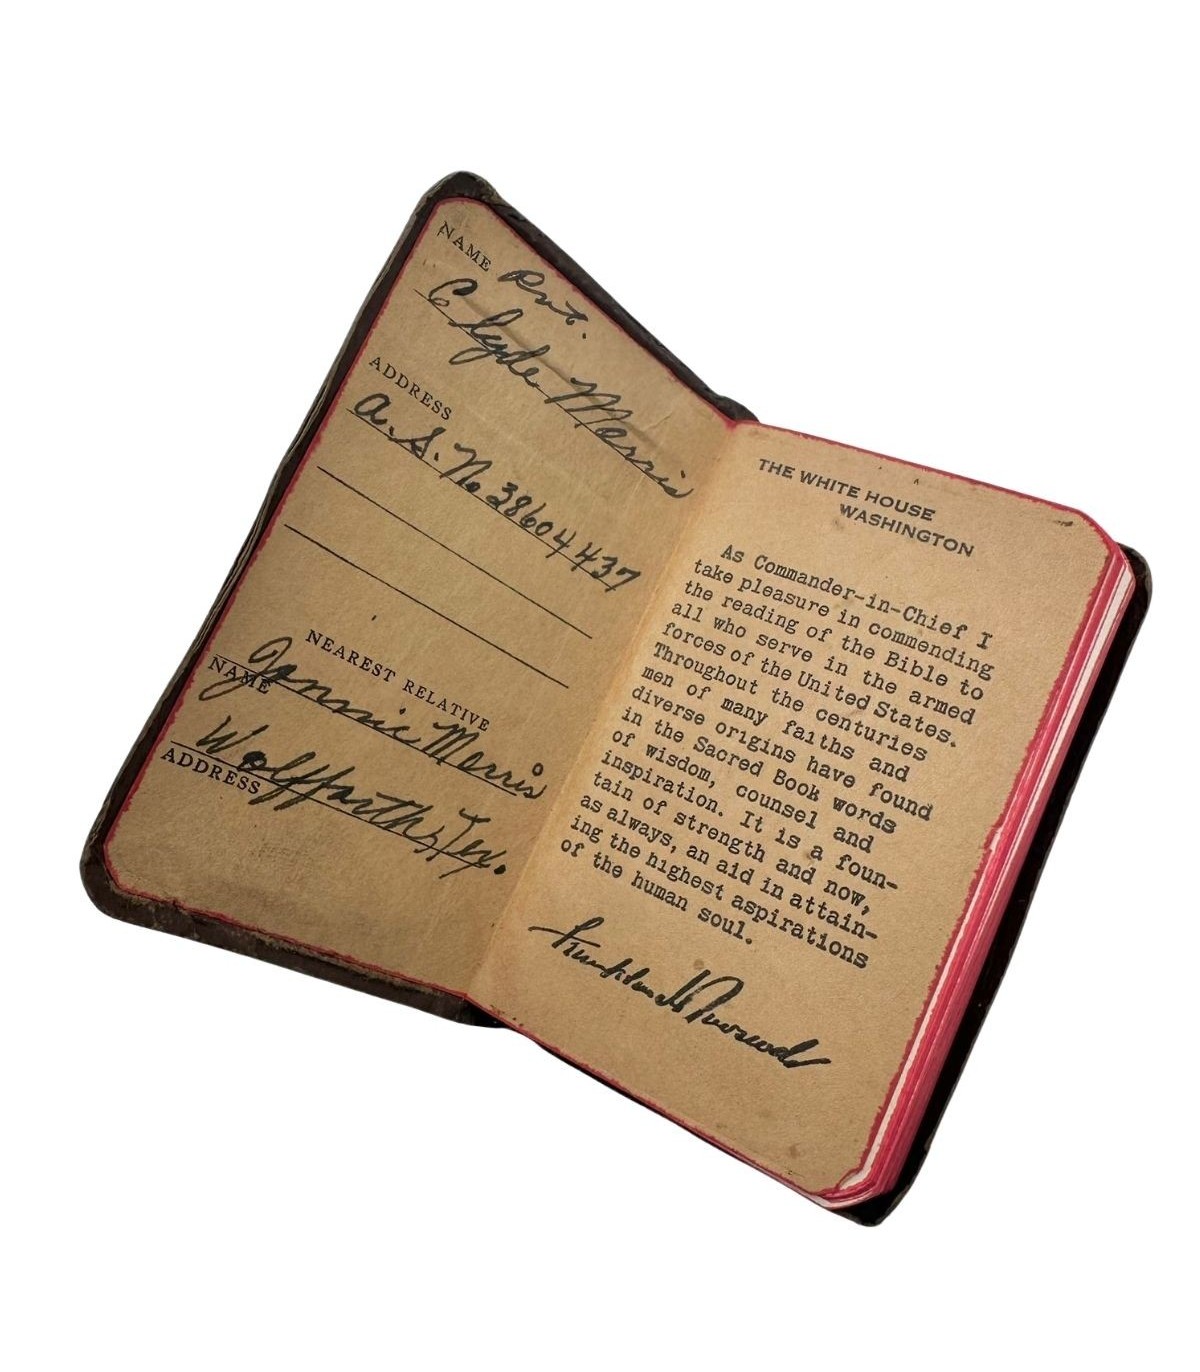 NAME Pvt.
Clyde Morris
ADDRESS
A.S.No 38604437
NEAREST RELATIVE
NAME Jannie Morris
Wolffarth, Tex.
ADDRESS
THE WHITE HOUSE
WASHINGTON
As Commander-in-Chief I
take pleasure in commending
the reading of the Bible to
all who serve in the armed
forces of the United States.
Throughout the centuries
men of many faiths and
diverse origins have found
in the Sacred Book words
of wisdom, counsel and
inspiration. It is a foun-
tain of strength and now,
as always, an aid in attain-
ing the highest aspirations
of the human soul.
Franklin D Roosevelt